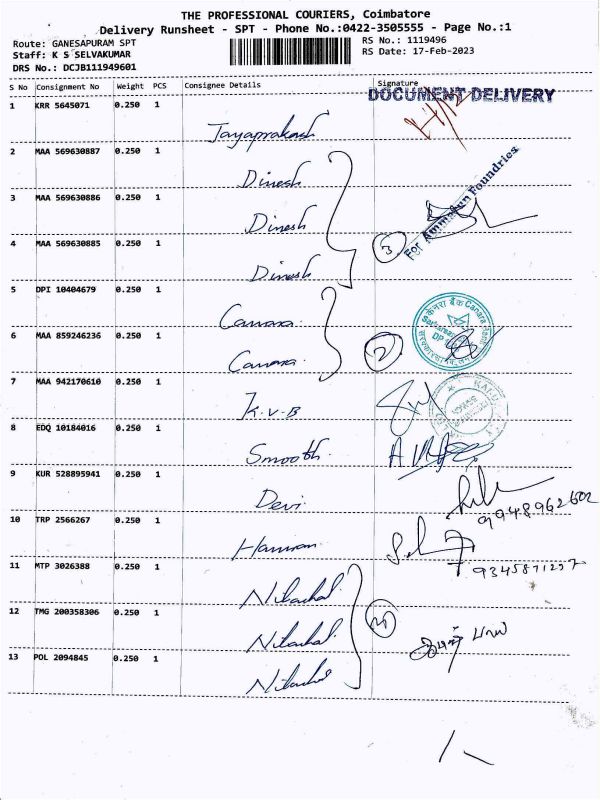 THE PROFESSIONAL COURIERS, Coimbatore
Delivery Runsheet - SPT - Phone No.:0422-3505555 - Page No.:1
Route: GANESAPURAM SPT
RS No.: 1119496
Staff: K S SELVAKUMAR
RS Date: 17-Feb-2023
DRS No.: DCJB111949601
S No Consignment No Weight PCS Consignee Details Signature
DOCUMENT DELIVERY
1 KRR 5645071 0.250 1
Jayaprakash
2 MAA 569630887 0.250 1
Dinesh
For Ammarun Foundries
3 MAA 569630886 0.250 1
Dinesh
3
4 MAA 569630885 0.250 1
Dinesh
5 DPI 10404679 0.250 1
Canara
6 MAA 859246236 0.250 1
Canara
2
7 MAA 942170610 0.250 1
K.V.B
8 EDQ 10184016 0.250 1
Smooth
9 KUR 528895941 0.250 1
Devi
9948962602
10 TRP 2566267 0.250 1
11 MTP 3026388 0.250 1
Nilachal
12 TMG 200358306 0.250 1
Nilachal
13 POL 2094845 0.250 1
Nilachal